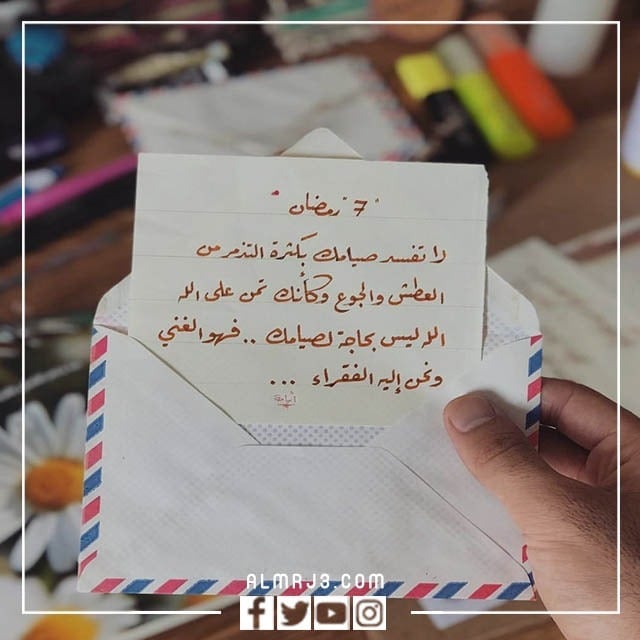 " 7 رمضان "
لا تفسد صيامك بكثرة التذمر من
العطش والجوع وكأنك تمن على الله
الله ليس بحاجة لصيامك .. فهو الغني
ونحن إليه الفقراء ...
ALMRJ3.COM